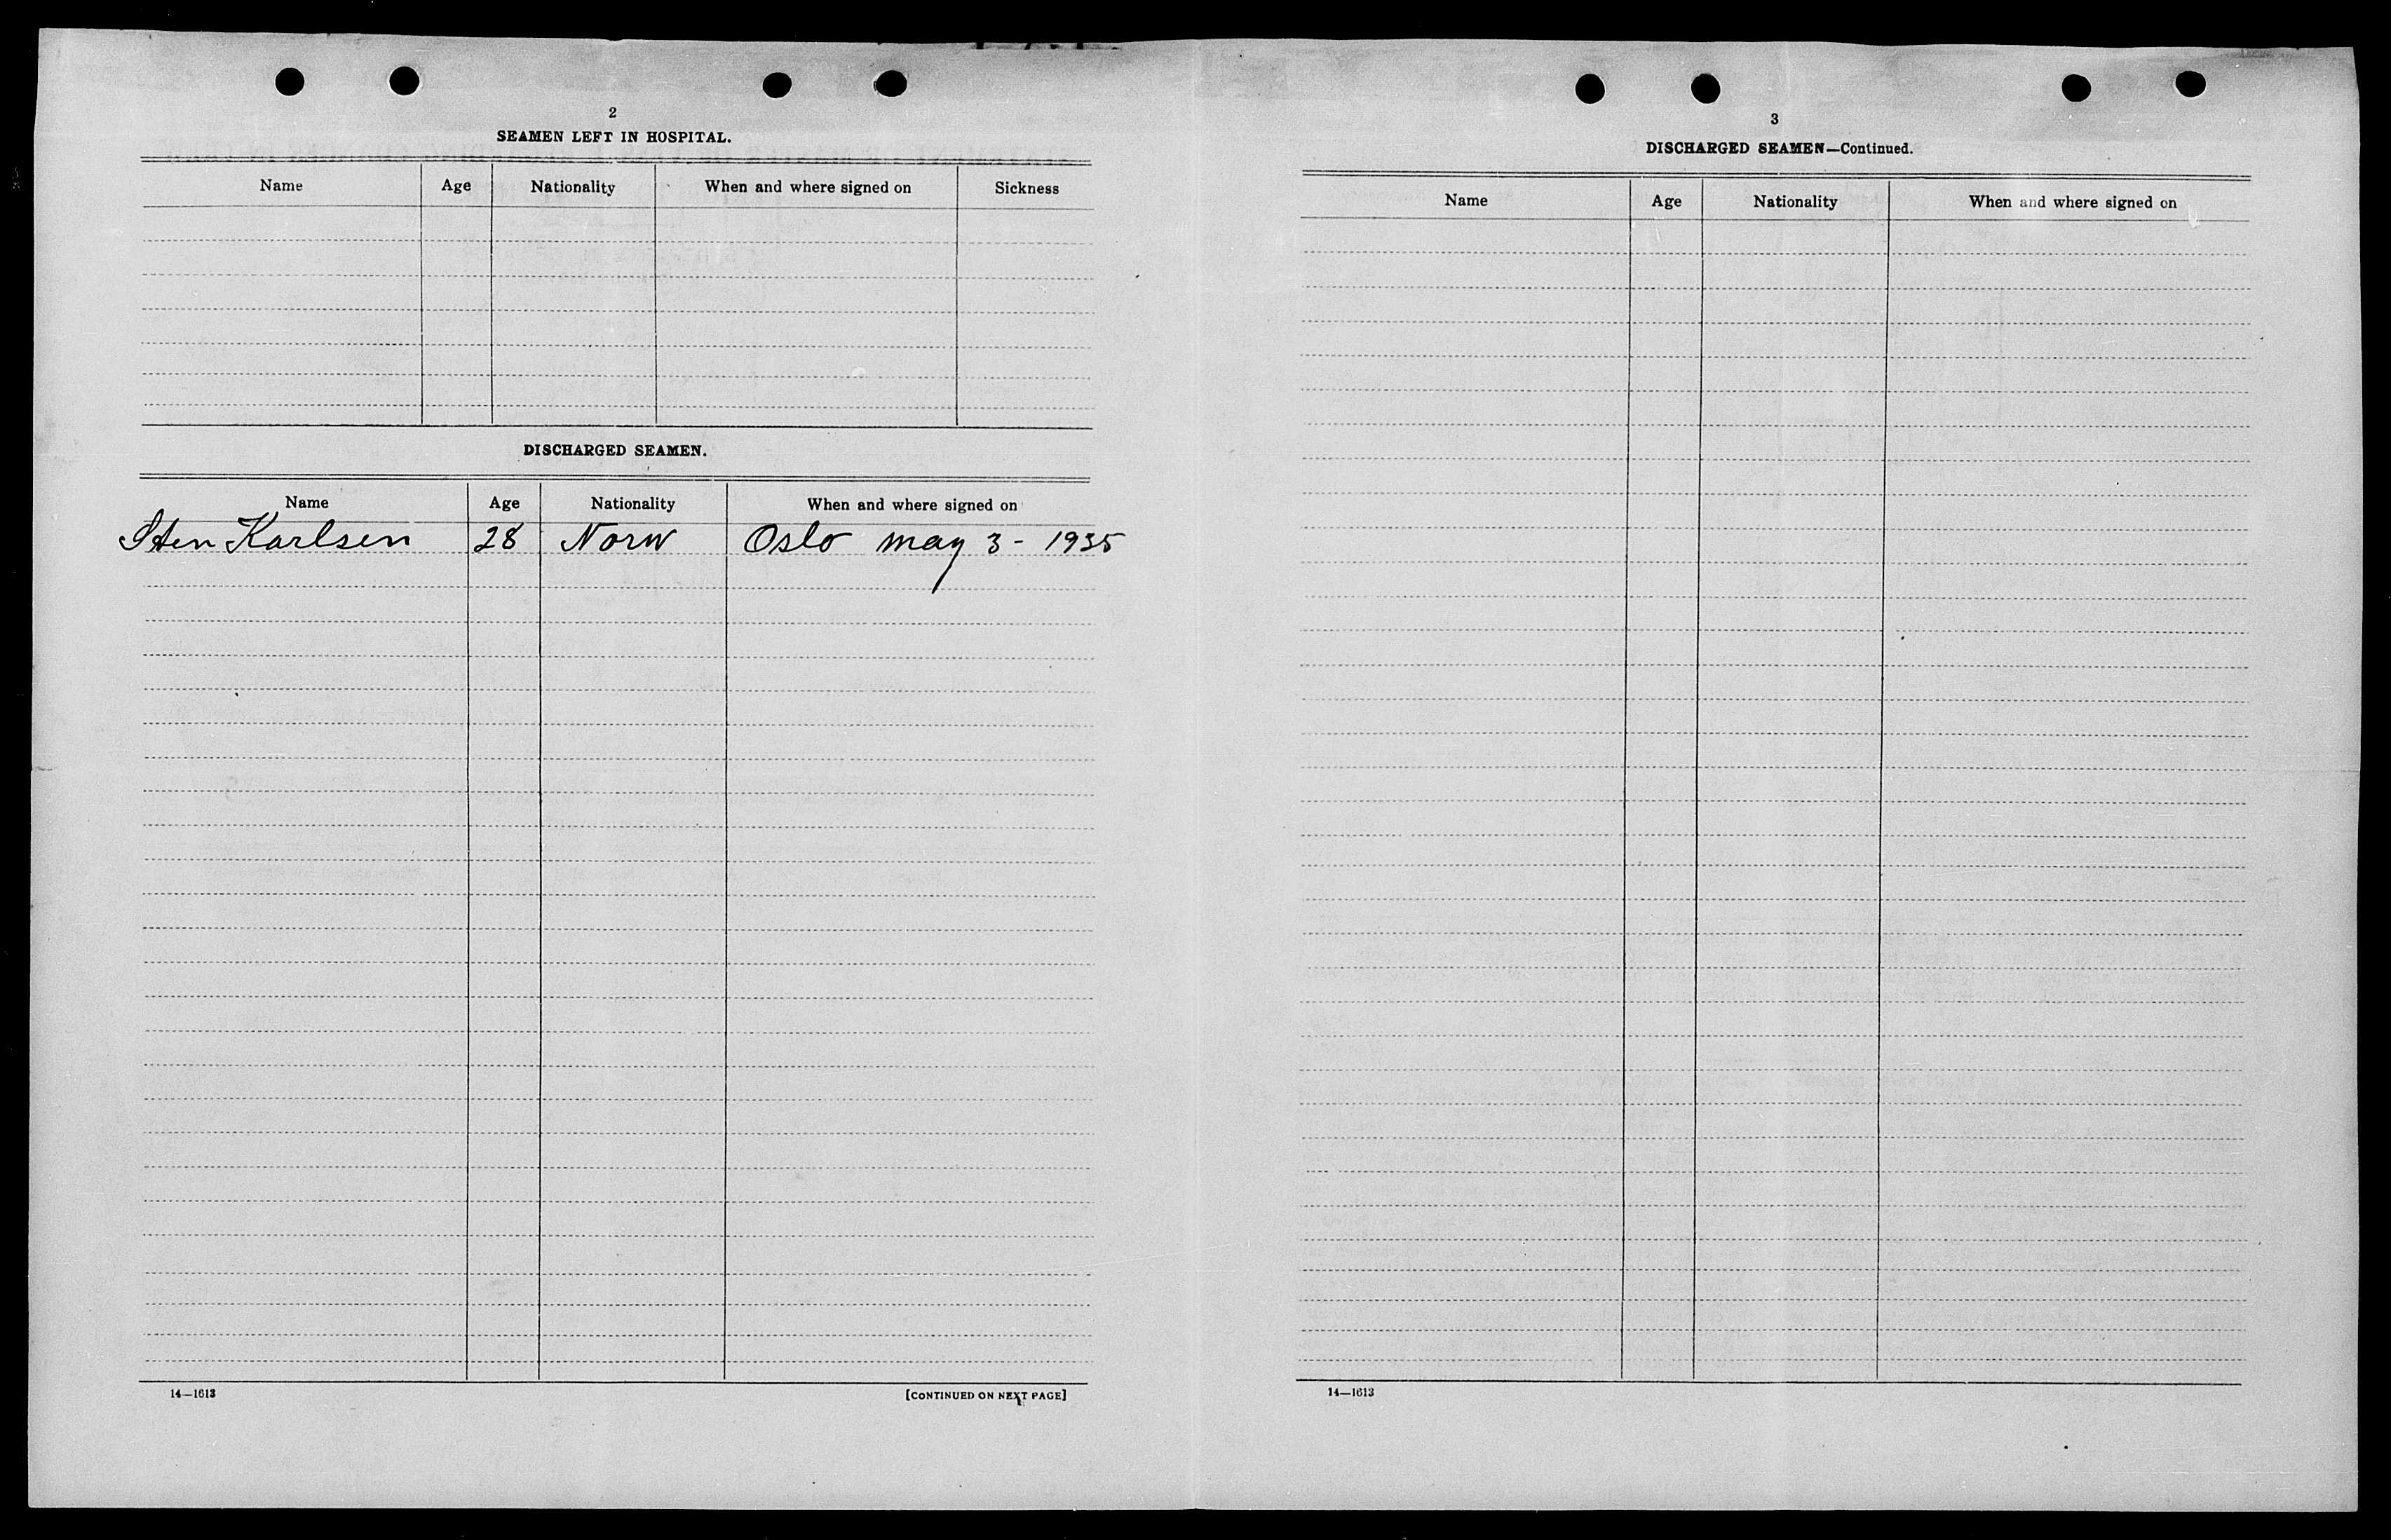 2
SEAMEN LEFT IN HOSPITAL.
Name Age Nationality When and where signed on Sickness
DISCHARGED SEAMEN.
Name Age Nationality When and where signed on
Sten Karlsen 28 Norw Oslo may 3 - 1935
14—1613 [CONTINUED ON NEXT PAGE]
3
DISCHARGED SEAMEN—Continued.
Name Age Nationality When and where signed on
14—1613